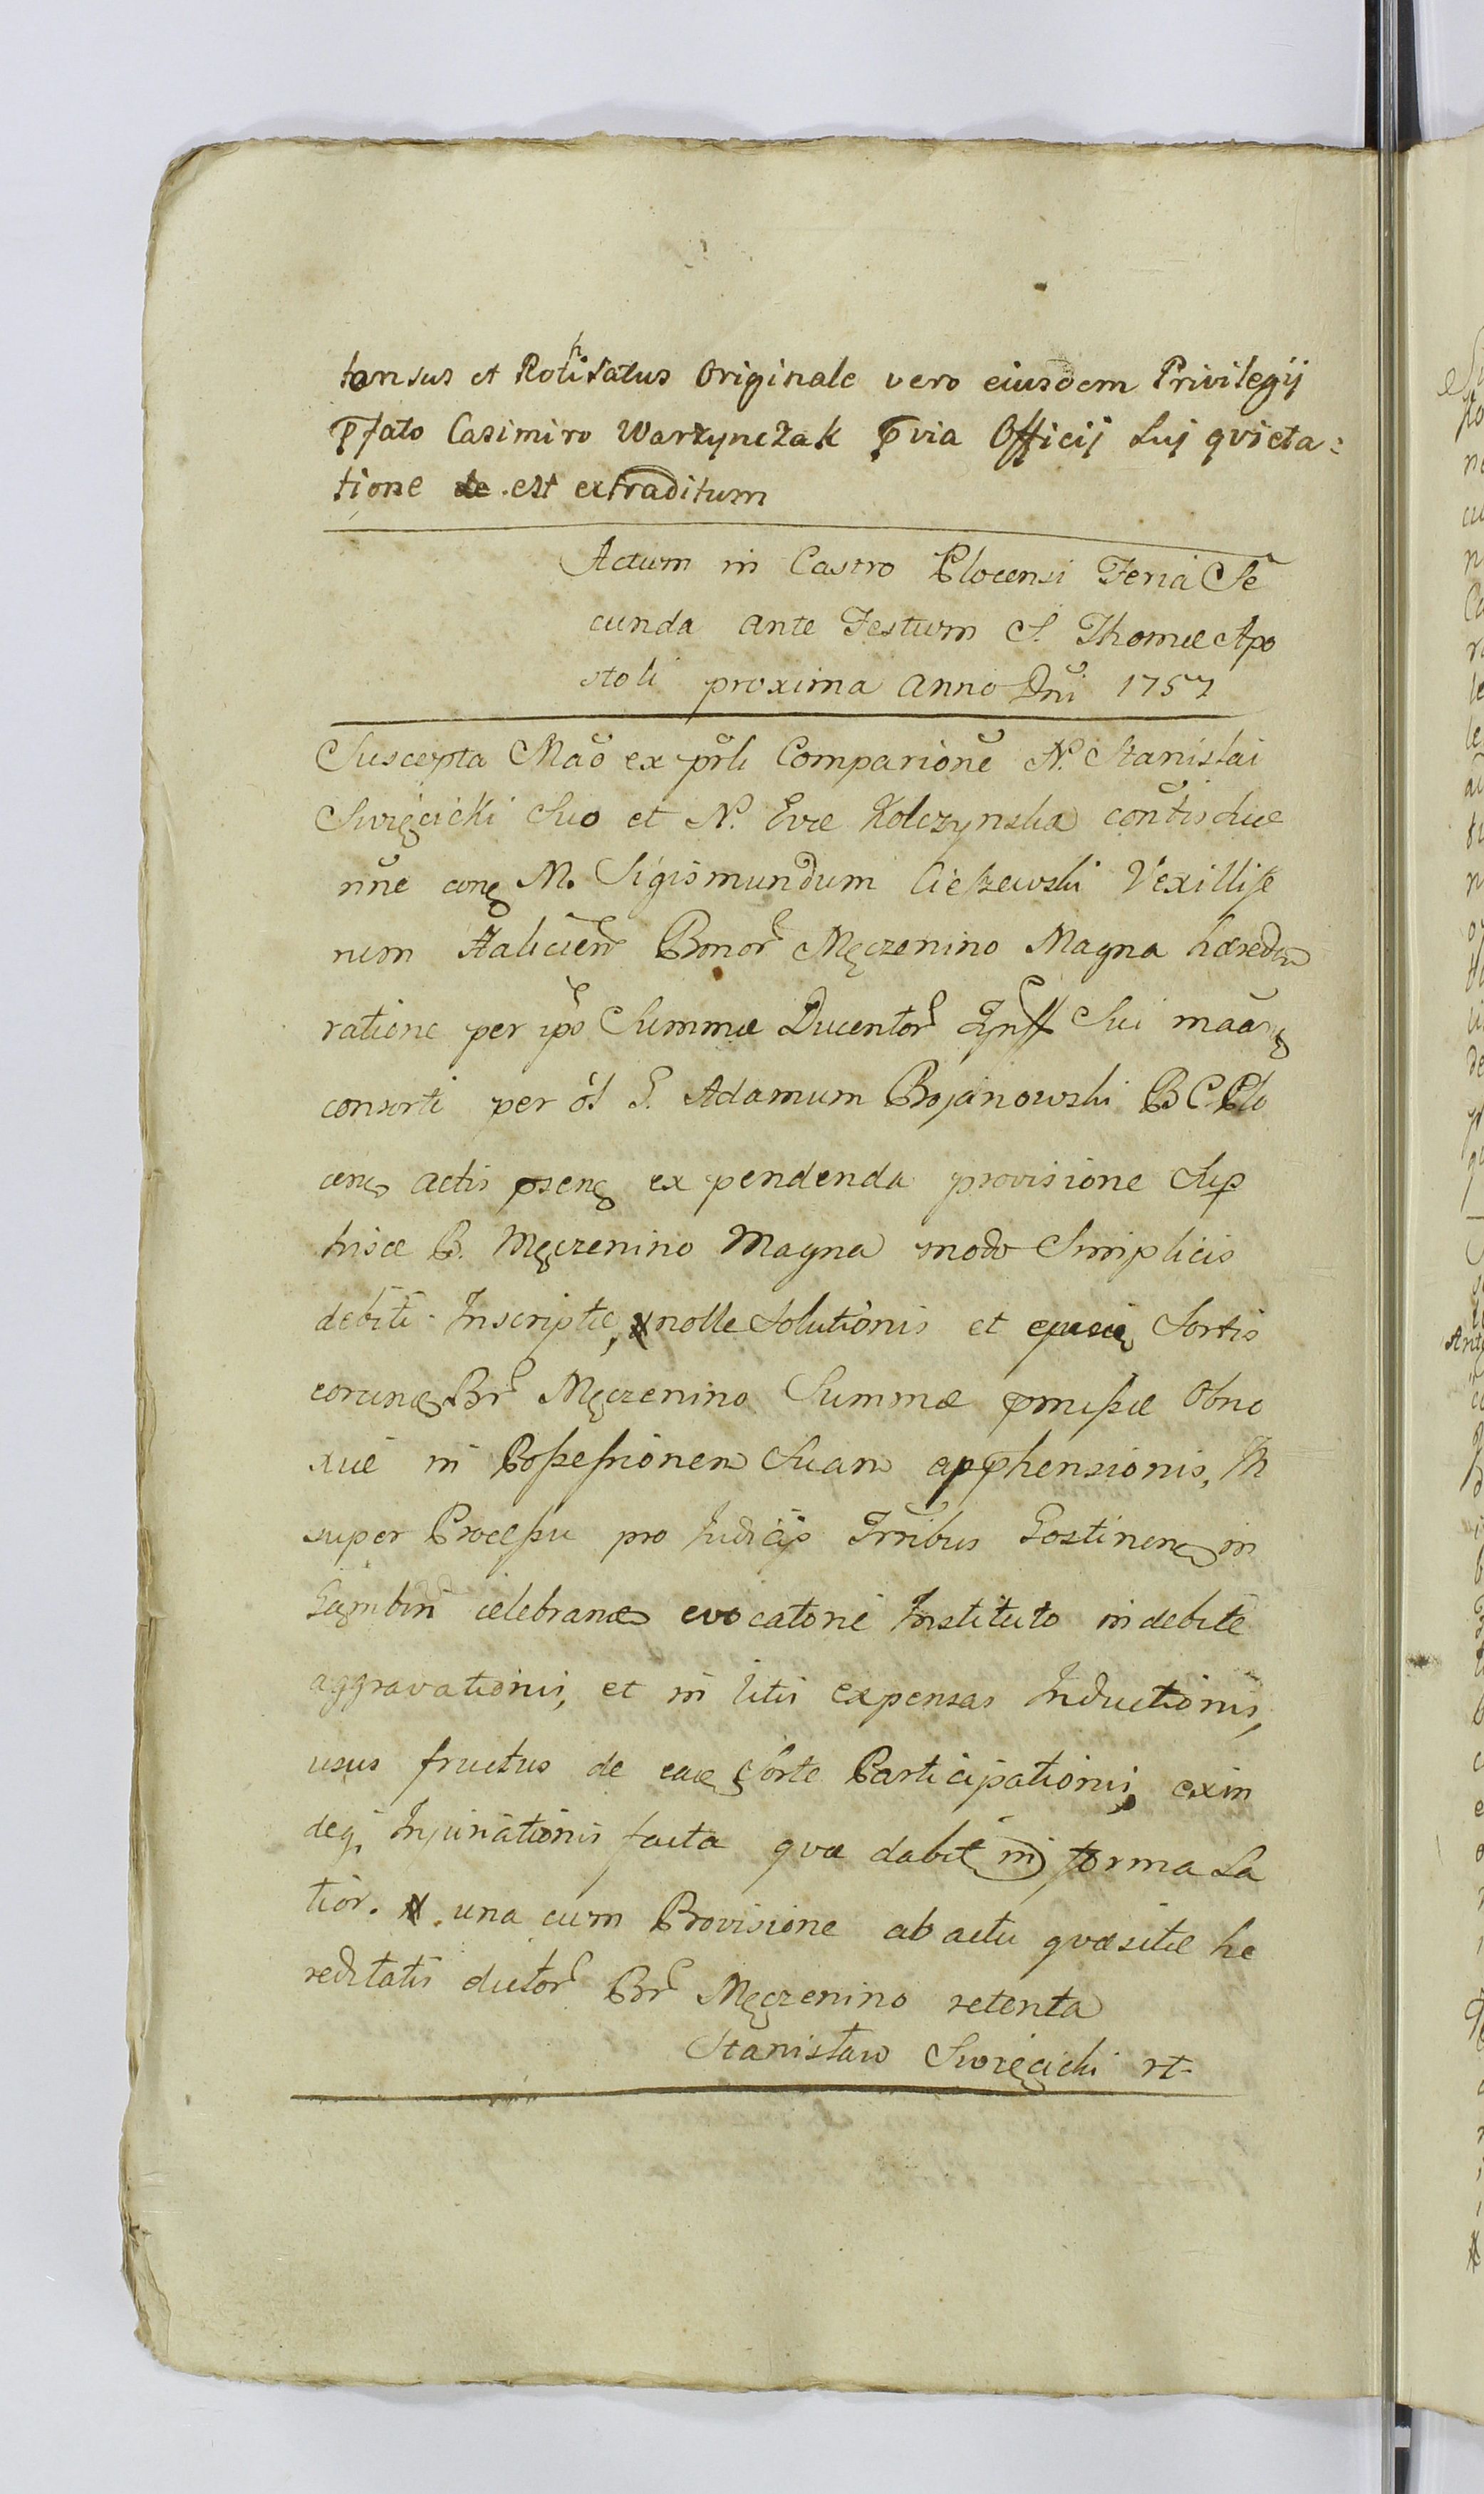 tansus et Rotisatus Originale vero eiusdem Privilegij
Pfato Casimiro Warzynczak via Officij Sui qvicta:
tione est extraditum
Actum in Castro Plocensi Feria Se
cunda ante Festum S. Thomæ Apo
stoli proxima Anno Dni 1757
Suscepta Mão ex prli Comparione N. Stanislai
Swięcicki Suo et N. Evæ Kolczynska contis suæ
nne con M. Sigismundum Cieszewski Vexillife
rum Halicien Bonor Męczenino Magna hæredem
ratione per ipo Summæ Ducentor Sui
consorti per G. Adamum Bojanowski B C Plo
cen Actis psen ex pendenda provisione Sup
hisce B. Męczenino Magna modo Simplicis
debiti Inscriptæ, nolle Solutionis et Sortis
eorund Br Męczenino Summæ pmissæ Obno
xiæ in Possessionem Suam apphensionis, In
super Processu pro Judicijs Trribus Gostinen in
Gąmbin celebrand evocatorie Instituto indebite
aggravationis, et in litis expensas Inductionis,
usus fructus de Sorte Participationis, exin
deq Injuriationis facta qvæ dabit in forma La
tior. una cum Provisione ab actu qvæsitæ he
reditatis dictor Br Męczenino retenta
Stanisław Swięcicki